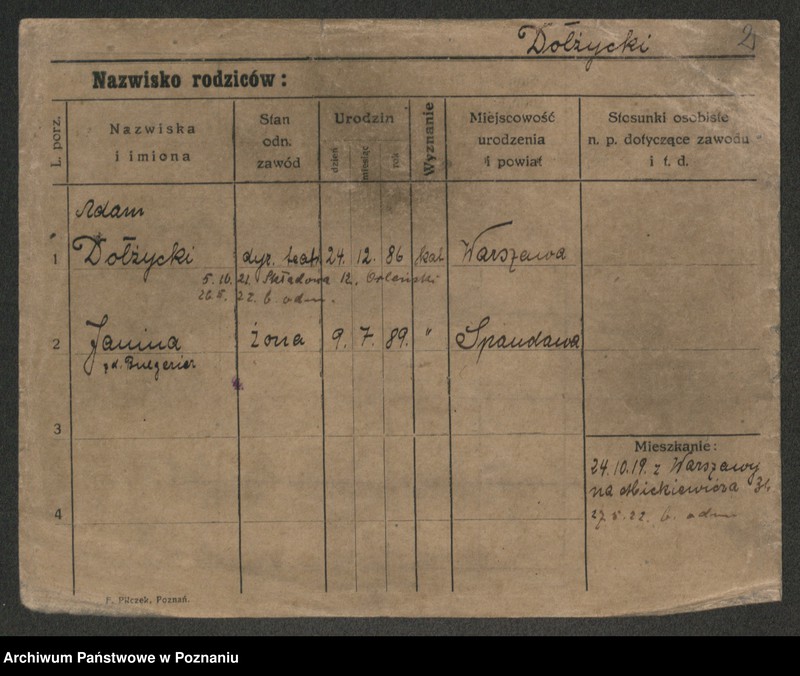 Dołżycki 2
Nazwisko rodziców :
L. porz.
Nazwiska
i imiona
Stan
odn.
zawód
Urodzin
dzień
miesiąc
rok
Wyznanie
Miejscowość
urodzenia
i powiat
Stosunki osobiste
n. p. dotyczące zawodu
i t. d.
Adam
1 Dołżycki dyr. teatr 24. 12. 86 kat Warszawa
5. 10. 21. Składowa 12.
26. 5. 22. b adm.
2 Janina żona 9. 7. 89. " Spandawa
3
Mieszkanie :
24.10.19. z Warszawy
na Mickiewicza 31.
27. 5. 22. b. adm
4
F. Pilczek, Poznań.
Archiwum Państwowe w Poznaniu